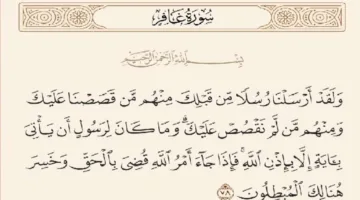 سُورَةُ غَافِر
بِسْمِ ٱللَّهِ ٱلرَّحْمَٰنِ ٱلرَّحِيمِ
وَلَقَدْ أَرْسَلْنَا رُسُلًا مِّن قَبْلِكَ مِنْهُم مَّن قَصَصْنَا عَلَيْكَ
وَمِنْهُم مَّن لَّمْ نَقْصُصْ عَلَيْكَ ۗ وَمَا كَانَ لِرَسُولٍ أَن يَأْتِىَ
بِـَٔايَةٍ إِلَّا بِإِذْنِ ٱللَّهِ ۚ فَإِذَا جَآءَ أَمْرُ ٱللَّهِ قُضِىَ بِٱلْحَقِّ وَخَسِرَ
هُنَالِكَ ٱلْمُبْطِلُونَ ٧٨